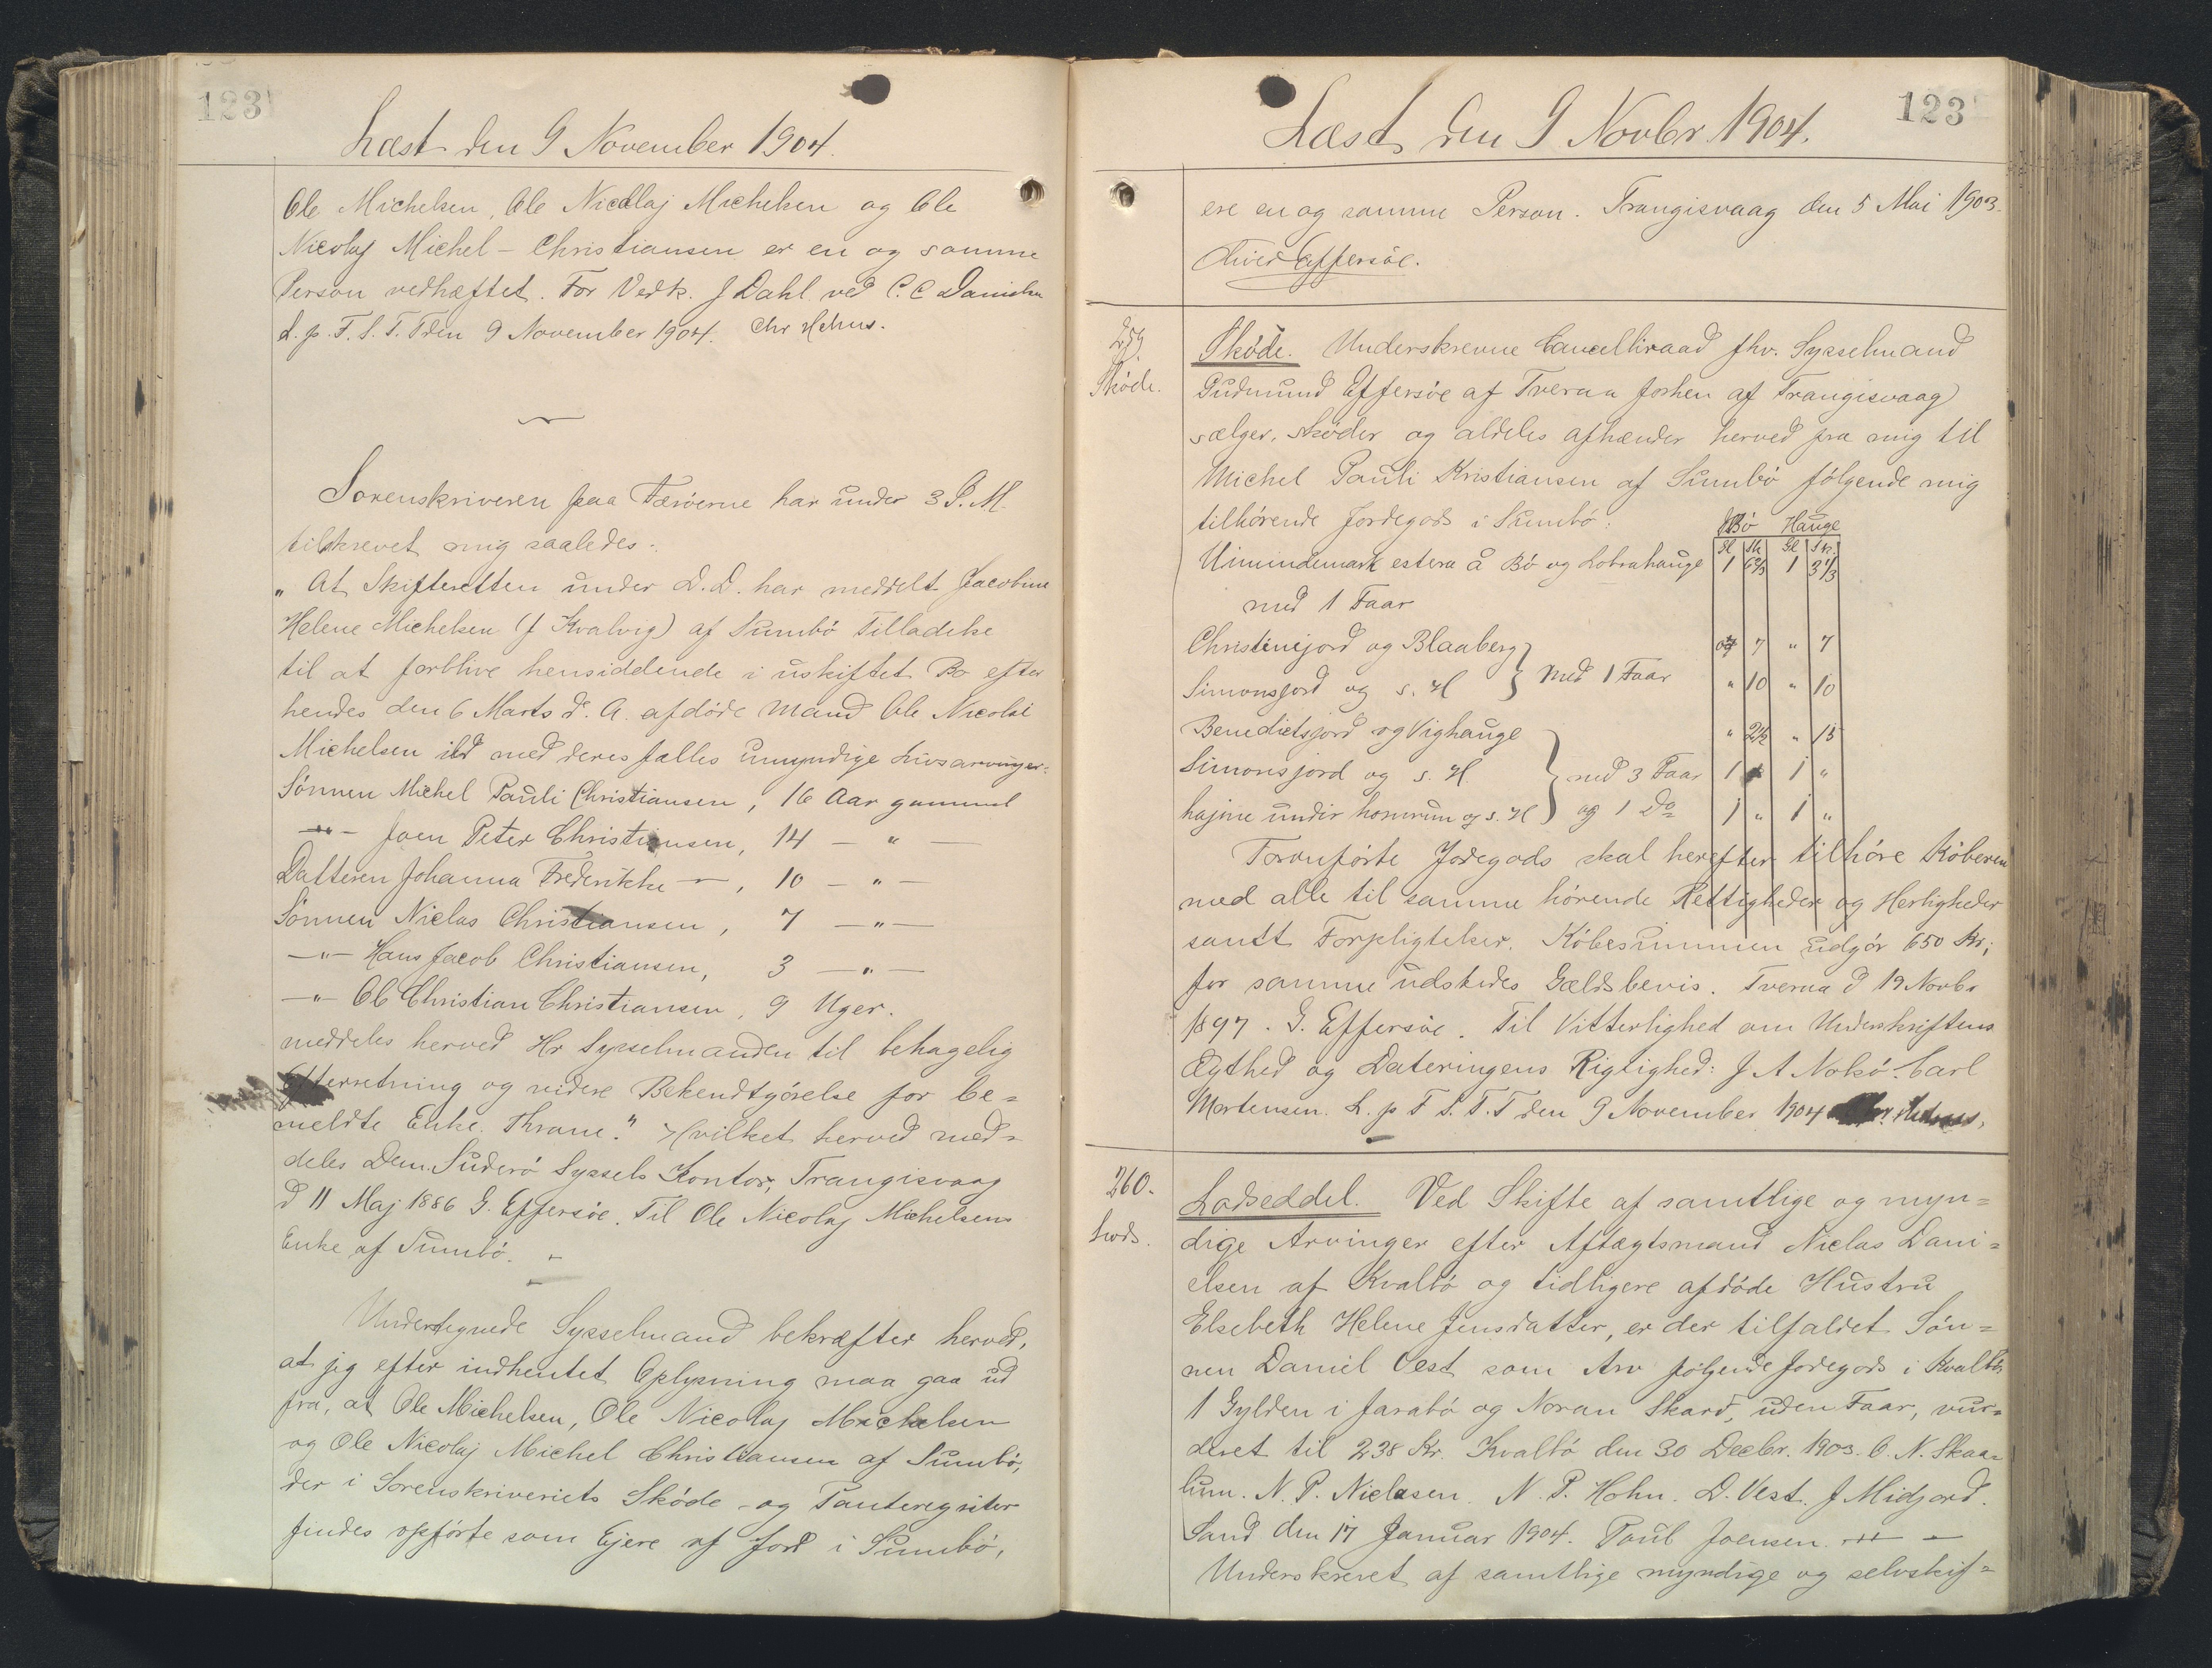 123
Læst den 9 November 1904.
Ole Michelsen, Ole Nicolaj Michelsen og Ole
Nicolaj Michel - Christiansen er en og samme
Person vedhæftet. For Vedk. J Dahl ved C. C Danielsen
L. p. F. S. T. T den 9 November 1904. Chr
Sorenskriveren paa Færøerne har under 3 D. M.
tilskrevet mig saaledes:
„ At Skifteretten under D. D. har meddelt Jacobine
Helene Michelsen (f Kvalvig) af Sumbø Tilladelse
til at forblive hensiddende i uskiftet Bo efter
hendes den 6 Marts d. A. afdøde Mand Ole Nicolai
Michelsen med deres fælles umyndige Livsarvinger:
Sønnen Michel Pauli Christiansen, 16 Aar gammel
—"— Joen Peter Christiansen, 14 — " —
Datteren Johanna Frederikke —"—, 10 — " —
Sønnen Niclas Christiansen, 7 — " —
—"— Hans Jacob Christiansen, 3 — " —
—"— Ole Christian Christiansen, 9 Uger.
meddeles herved Hr Sysselmanden til behagelig
Efterretning og videre Bekendtgørelse for be=
meldte Enke. Thrane." Hvilket herved med=
deles Dem. Suderø Syssels Kontor, Trangisvaag
d 11 Maj 1886 G. Effersøe. Til Ole Nicolaj Michelsens
Enke af Sumbø.
Undertegnede Sysselmand bekræfter herved,
at jeg efter indhentet Oplysning maa gaa ud
fra, at Ole Michelsen, Ole Nicolaj Michelsen
og Ole Nicolaj Michel Christiansen af Sumbø,
der i Sorenskriveriets Skøde- og Panteregister
findes opførte som Ejere af Jord i Sumbø,
123
Læst den 9 Novbr 1904.
ere en og samme Person. Trangisvaag den 5 Mai 1903.
Oliver Effersøe.
259.
Skøde.
Skøde. Underskrevne Cancelliraad fhv. Sysselmand
Gudmund Effersøe af Tveraa forhen af Trangisvaag
sælger, skøder og aldeles afhænder herved fra mig til
Michel Pauli Kristiansen af Sumbø følgende mig
tilhørende Jordegods i Sumbø: Bø Hauge
Gl Sk Gl Sk.
Uimindemark estera å Bø og Lobrahauge 1 6 2/3 1 3 1/3
med 1 Faar
Christinejord og Blaaberg 7 " 7
Simonsjord og s. H } med 1 Faar " 10 " 10
Benedictsjord og Vighauge " 2½ " 15
Simonsjord og s. H. } med 3 Faar 1 1 "
hajme undir homrum og s. H og 1 Do 1 " 1 "
Foranførte Jordegods skal herefter tilhøre Køberen
med alle til samme hørende Rettigheder og Herligheder
samt Forpligtelser. Købesummen udgør 650 Kr;
for samme udstedes Gældsbevis. Tveraa d 19 Novbr
1897. G. Effersøe. Til Vitterlighed om Underskriftens
Ægthed og Dateringens Rigtighed: J A Nolsø. Carl
Mortensen. L. p F S. T. T den 9 November 1904
260.
Lods.
Lodseddel. Ved Skifte af samtlige og myn=
dige Arvinger efter Aftægtsmand Niclas Dani=
elsen af Kvalbø og tidligere afdøde Hustru
Elsebeth Helene Jensdatter, er der tilfaldet Søn=
nen Daniel Vest som Arv følgende Jordegods i Kvalbø:
1 Gylden i Jarabø og Noran Skard, uden Faar, vur=
deret til 238 Kr. Kvalbø den 30 Decbr. 1903. O. N. Skaa=
lum. N. P. Niclasen. N. P. Holm. D. Vest. J Midjord.
Sand den 17 Januar 1904. Poul Joensen.
Underskrevet af samtlige myndige og selvskif=